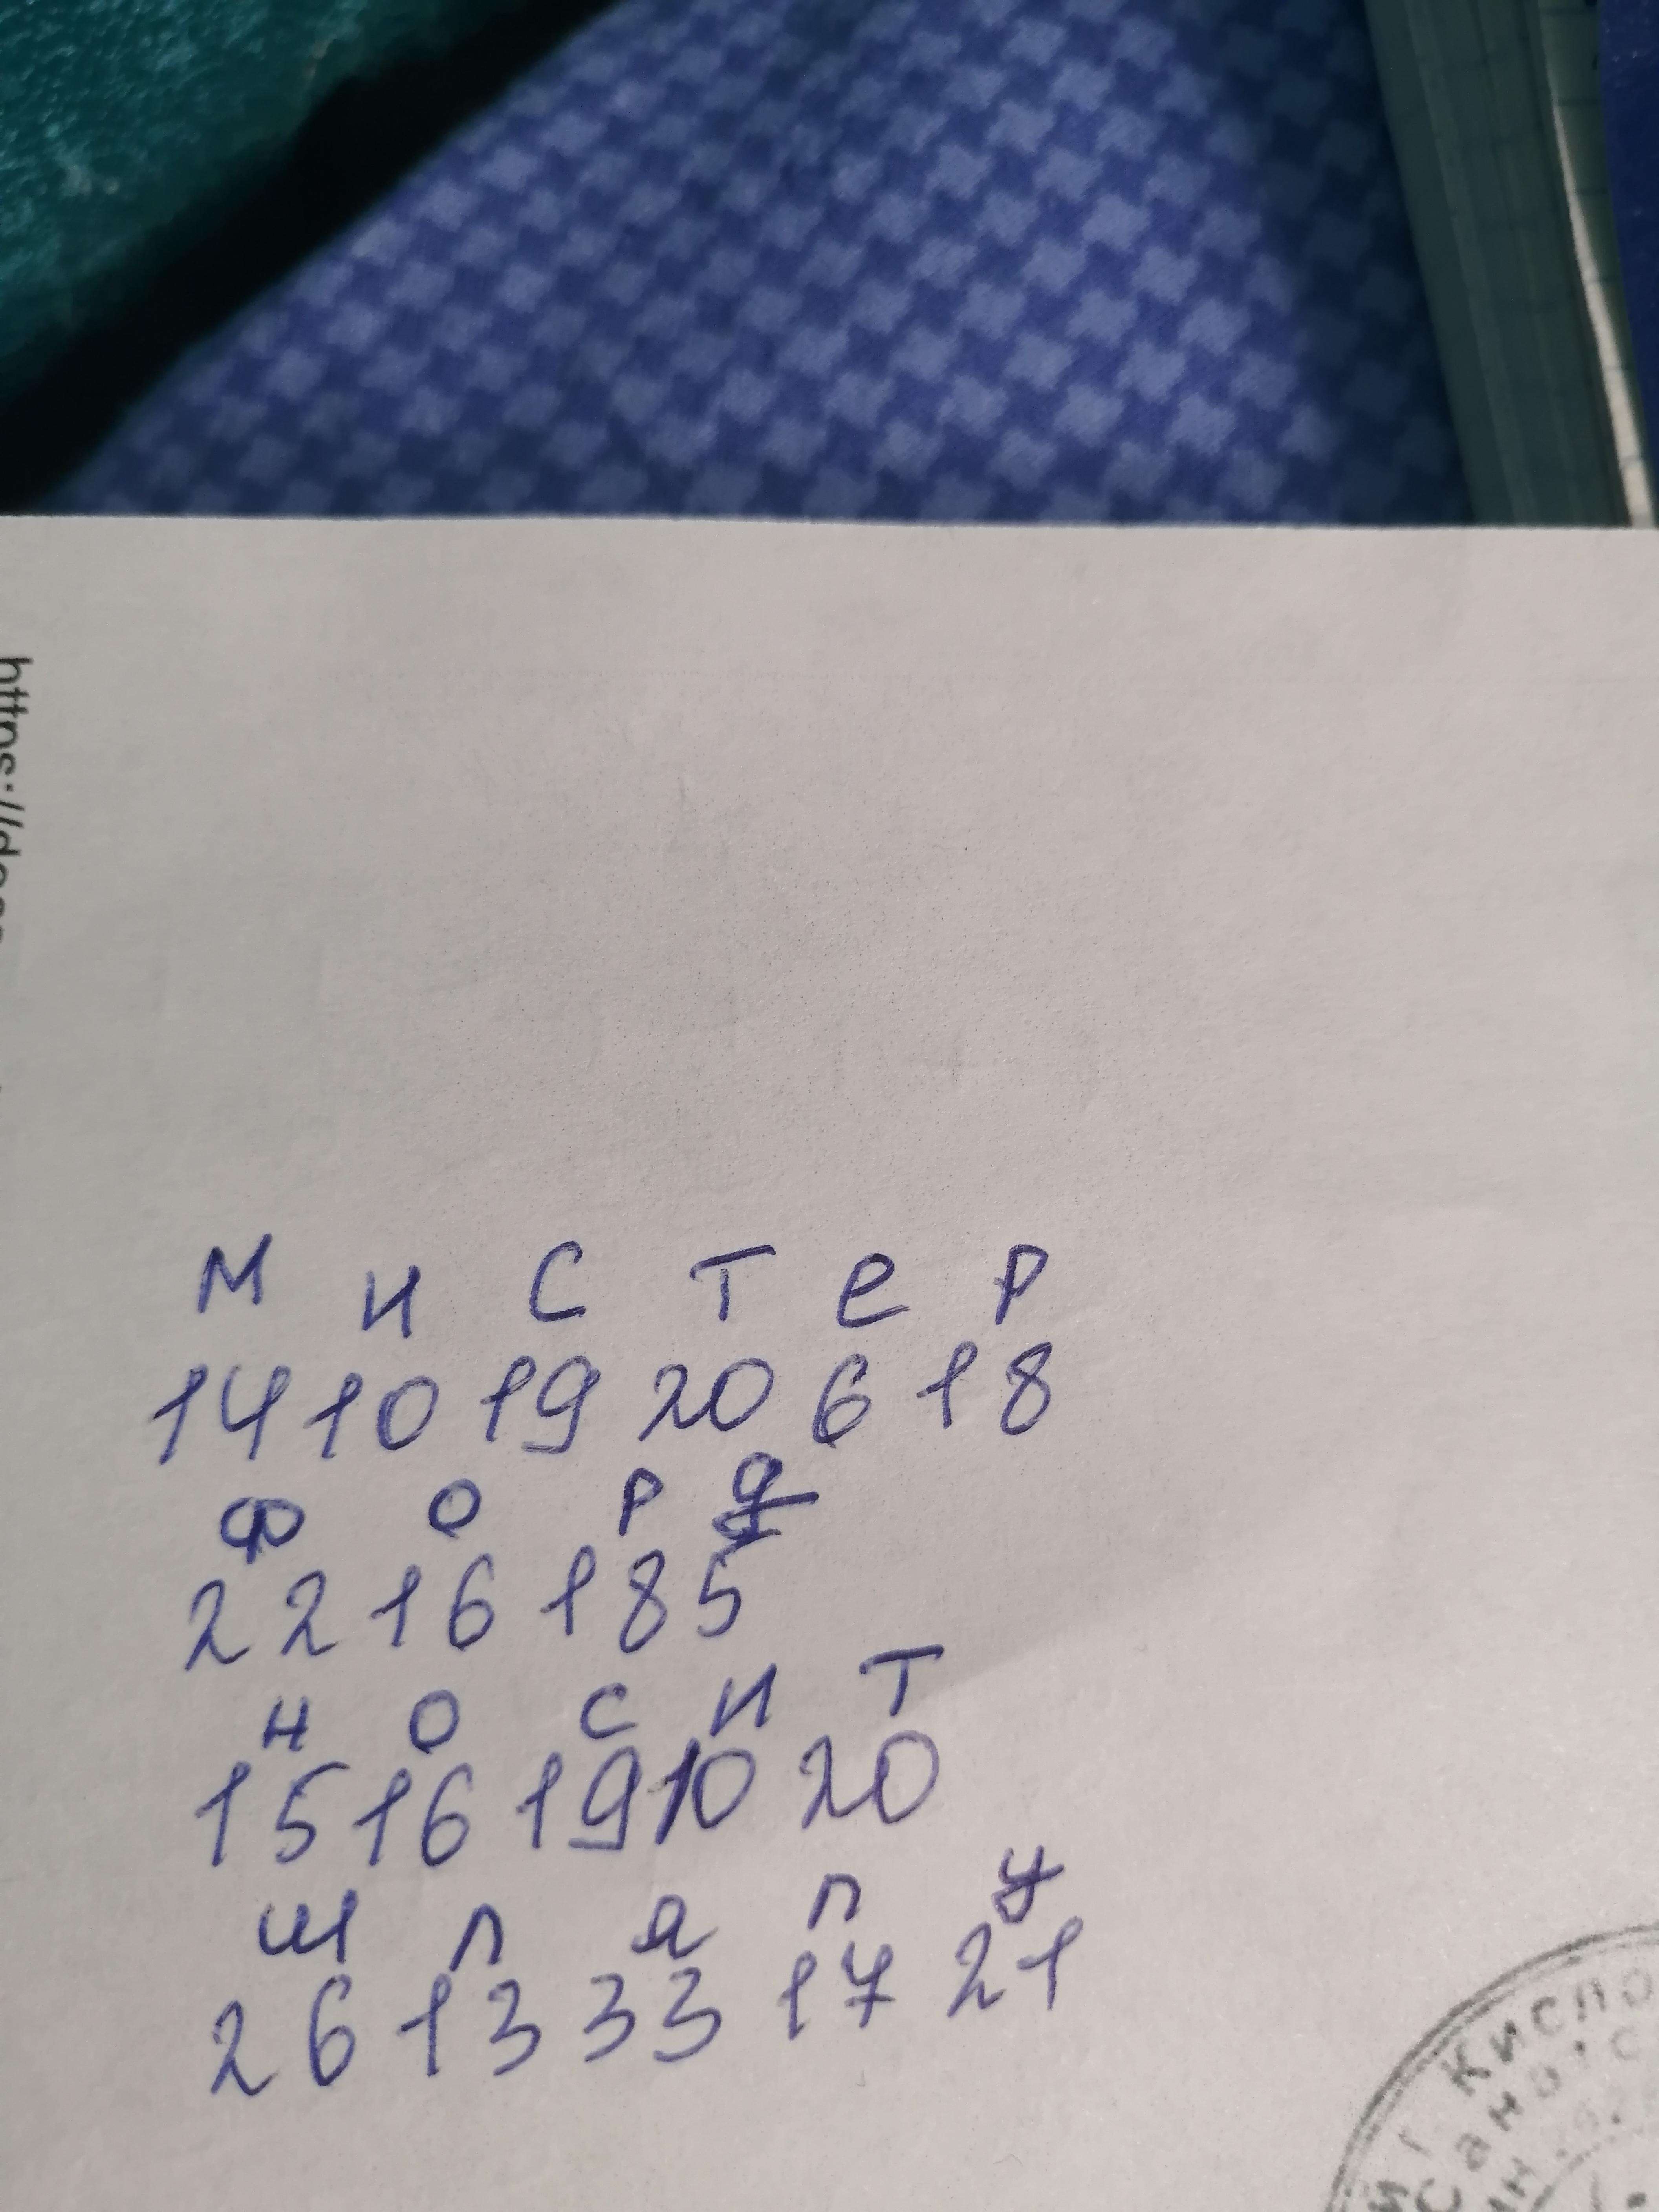 М И С Т е Р
14 10 19 20 6 18
Ф О Р д
22 16 18 5
Н О С И Т
15 16 19 10 20
Ш Л Я П У
26 13 33 17 21
https://docs
Кисло